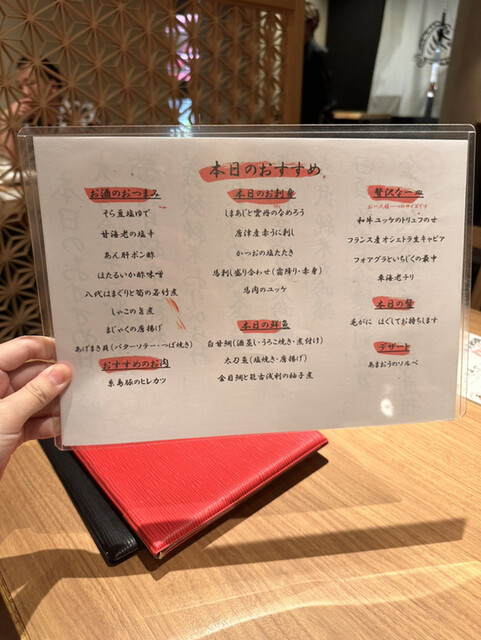 本日のおすすめ
お酒のおつまみ
そら豆塩ゆで
甘海老の塩辛
あん肝ポン酢
ほたるいか酢味噌
八代はまぐりと筍の若竹煮
しゃこの旨煮
まじゃくの唐揚げ
あげまき貝(バターソテー・つぼ焼き)
おすすめのお肉
糸島豚のヒレカツ
本日のお刺身
しまあじと雲丹のなめろう
唐津産赤うに刺し
かつおの塩たたき
馬刺し盛り合わせ(霜降り・赤身)
馬肉のユッケ
本日の鮮魚
白甘鯛(酒蒸し・うろこ焼き・煮付け)
太刀魚(塩焼き・唐揚げ)
金目鯛と能古浅利の柚子煮
贅沢な一皿
お一人様一つのサイズです
和牛ユッケのトリュフのせ
フランス産オシェトラ生キャビア
フォアグラといちじくの最中
車海老チリ
本日の蟹
毛がに ほぐしてお持ちします
デザート
あまおうのソルベ